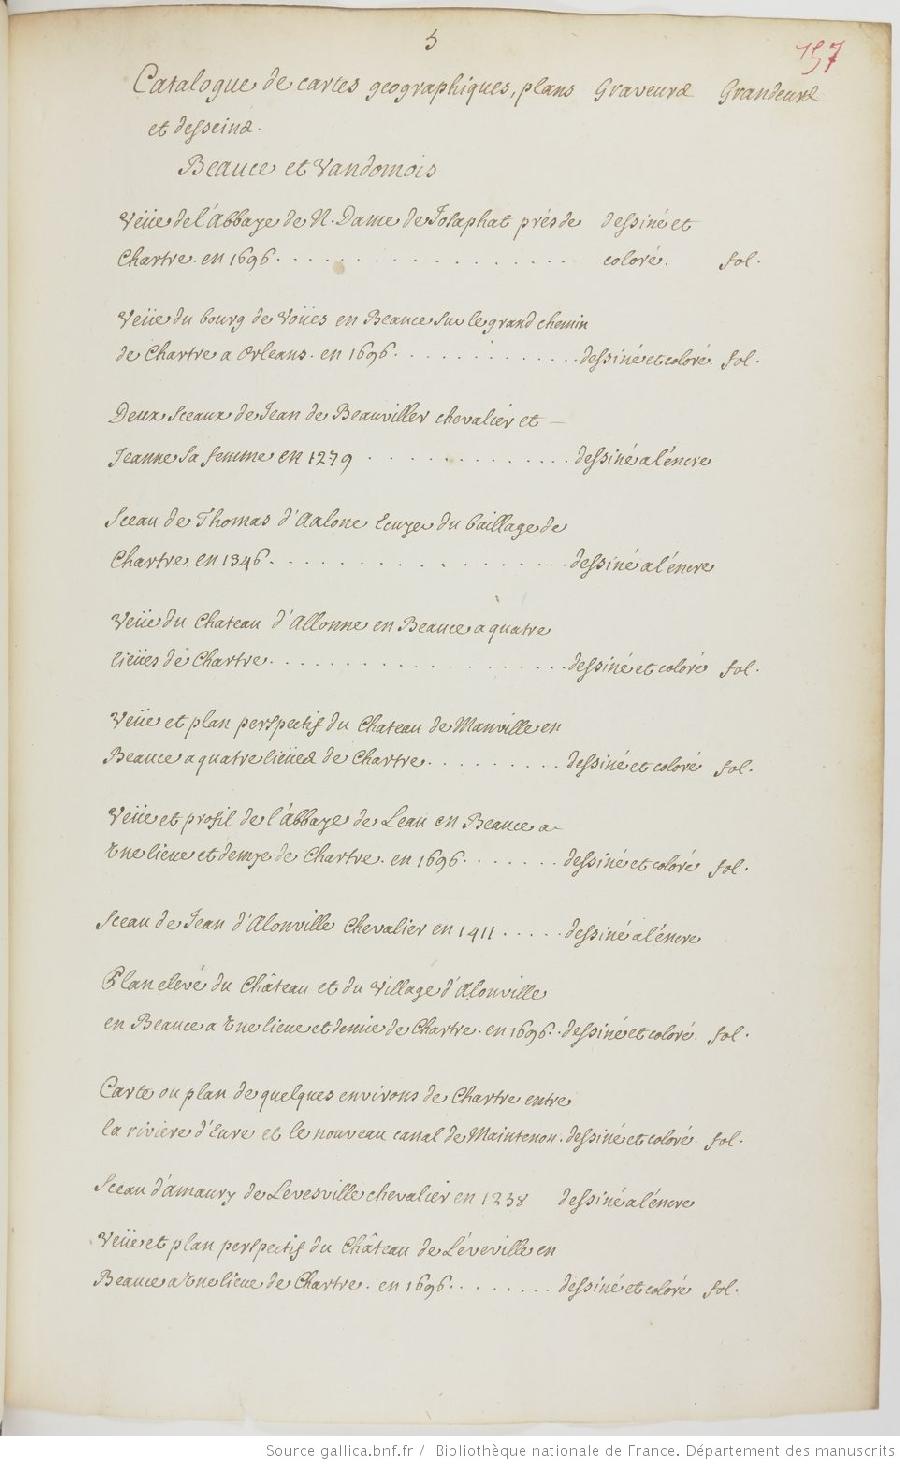 5
757
Catalogue de cartes geographiques, plans Graveurs Grandeurs
et desseins.
Beauce et Vandomois
Veüe de l'Abbaye de N. Dame de Josaphat prés de dessiné et
Chartre. en 1696. coloré. fol.
Veüe du bourg de Voües en Beauce sur le grand chemin
de Chartre a Orleans. en 1696. dessiné et coloré fol.
Deux Sceaux de Jean de Beauviller chevalier et
Jeanne sa femme en 1279 dessiné a l'encre
Sceau de Thomas d'Aalone Ecuyer du baillage de
Chartre en 1346. dessiné a l'encre
Veüe du Chateau d'Allonne en Beauce a quatre
lieües de Chartre. dessiné et coloré fol.
Veüe et plan perspectif du Chateau de Manville en
Beauce a quatre lieües de Chartre. dessiné et coloré fol.
Veüe et profil de l'Abbaye de Leau en Beauce a
Une lieue et demye de Chartre. en 1696. dessiné et coloré fol.
Sceau de Jean d'Alonville Chevalier en 1411 dessiné a l'encre
Plan elevé du Château et du Village d'Alonville
en Beauce a Une lieue et demie de Chartre. en 1696. dessiné et coloré fol.
Carte ou plan de quelques environs de Chartre entre
la riviere d'Eure et le nouveau canal de Maintenon. dessiné et coloré fol.
Sceau d'amaury de Levesville chevalier en 1238 dessiné a l'encre
Veüe et plan perspectif du Château de Léveville en
Beauce a Une lieue de Chartre. en 1696. dessiné et coloré fol.
Source gallica.bnf.fr / Bibliothèque nationale de France. Département des manuscrits